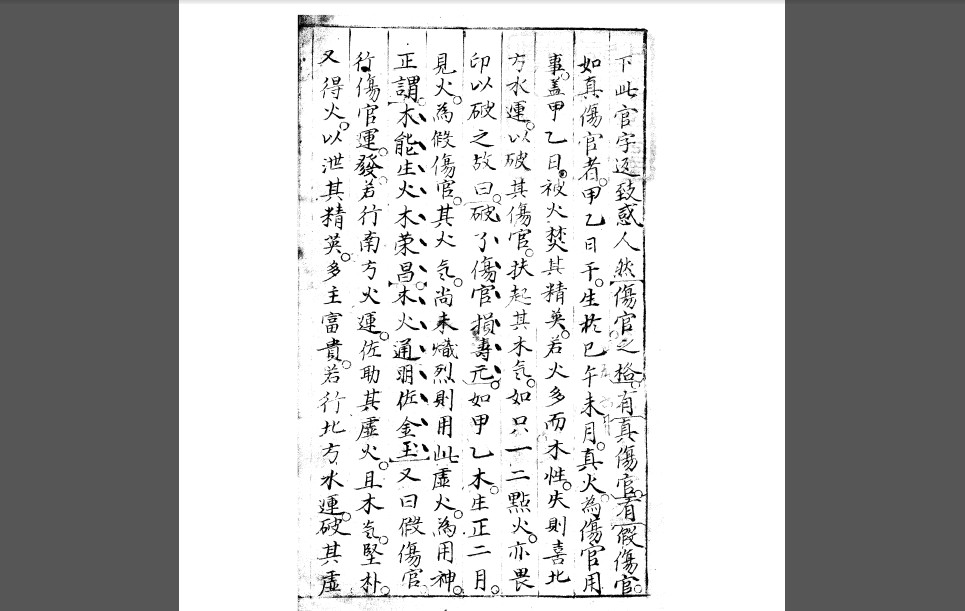 下此官字返致惑人然傷官之格有真傷官有假傷官
如真傷官者甲乙日干生於巳午未月真火為傷官用
事蓋甲乙日被火焚其精英若火多而木性失則喜北
方水運以破其傷官扶起其木氣如只一二點火亦畏
印以破之故曰破了傷官損壽元如甲乙木生正二月
見火為假傷官其火氣尚未熾烈則用此虛火為用神
正謂木能生火木荣昌木火通明佐金玉又曰假傷官
行傷官運發若行南方火運佐助其虛火且木氣堅朴
又得火以泄其精英多主富貴若行北方水運破其虛